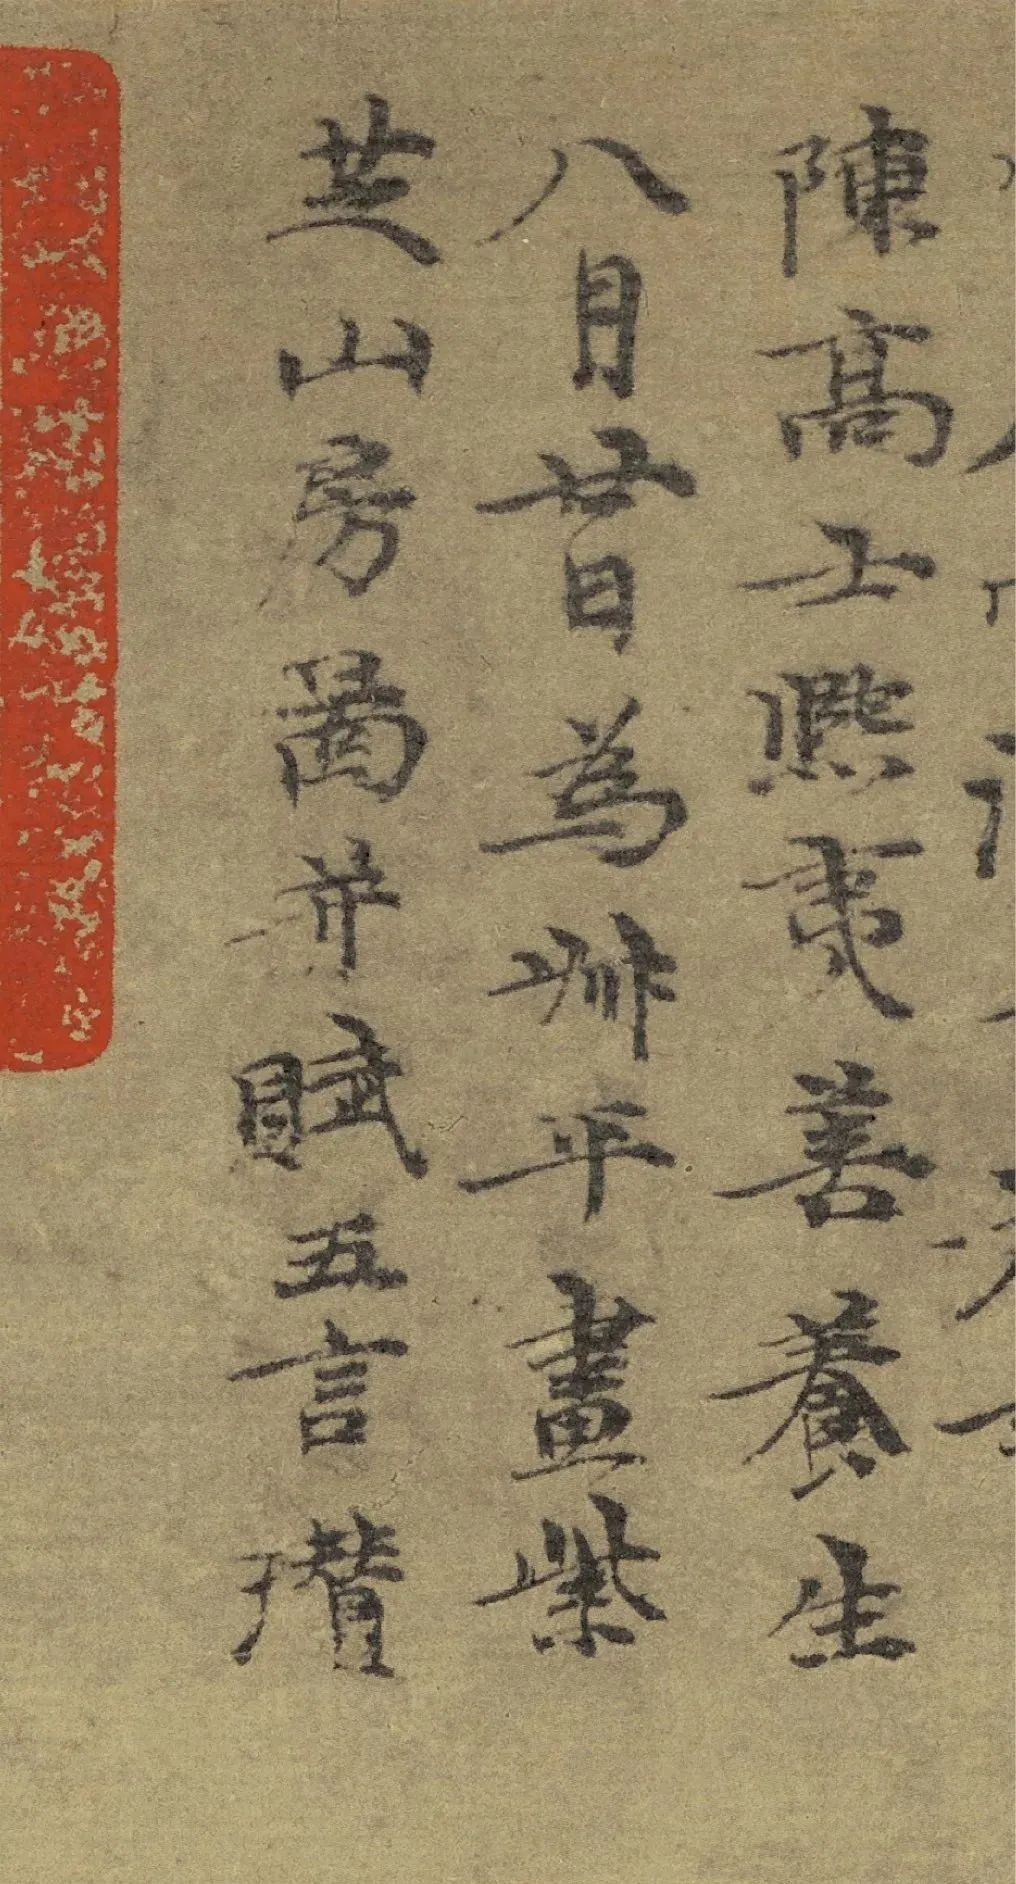 陳高士熙夷善養生
八月廿日為叔平畫紫
芝山房啚并賦五言瓚